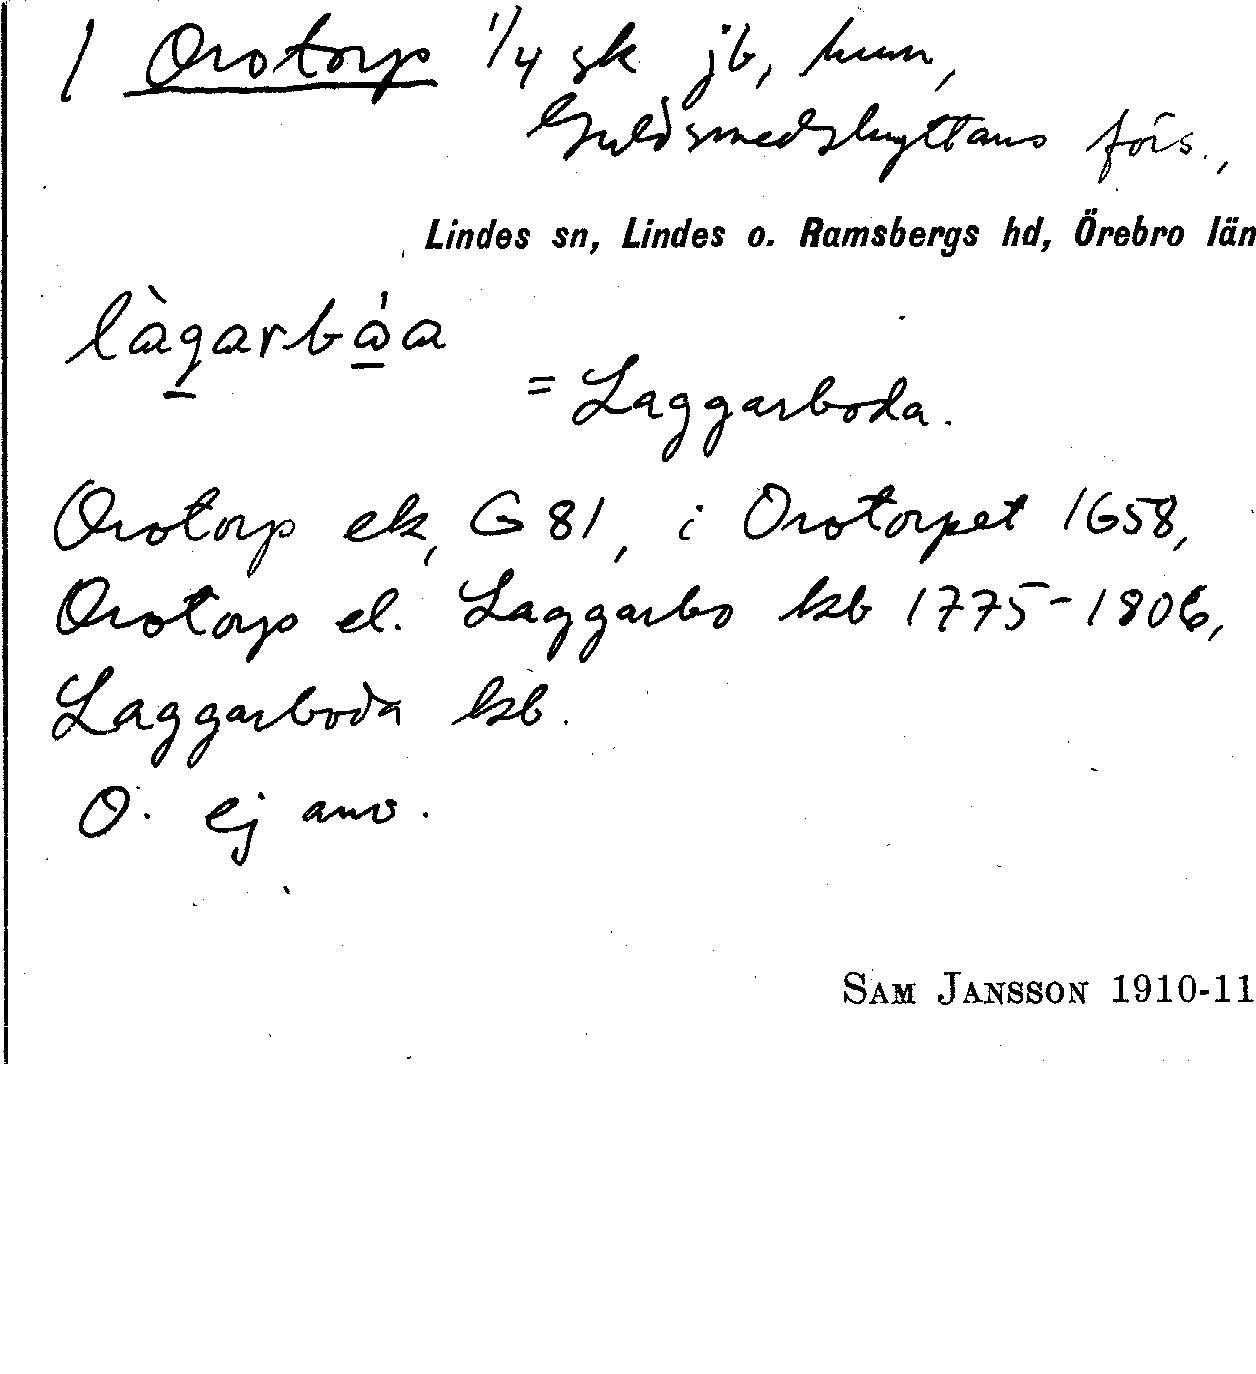 1 Orotorp 1/4 sk jb, hmn,
Guldsmedshyttans förs.,
Lindes sn, Lindes o. Ramsbergs hd, Örebro län
làgarbå̀a
= Laggarboda.
Orotorp ek, G 81, i Orotorpet 1658,
Orotorp el. Laggarbo kb 1775-1806,
Laggarboda kb.
O. ej anv.
SAM JANSSON 1910-11